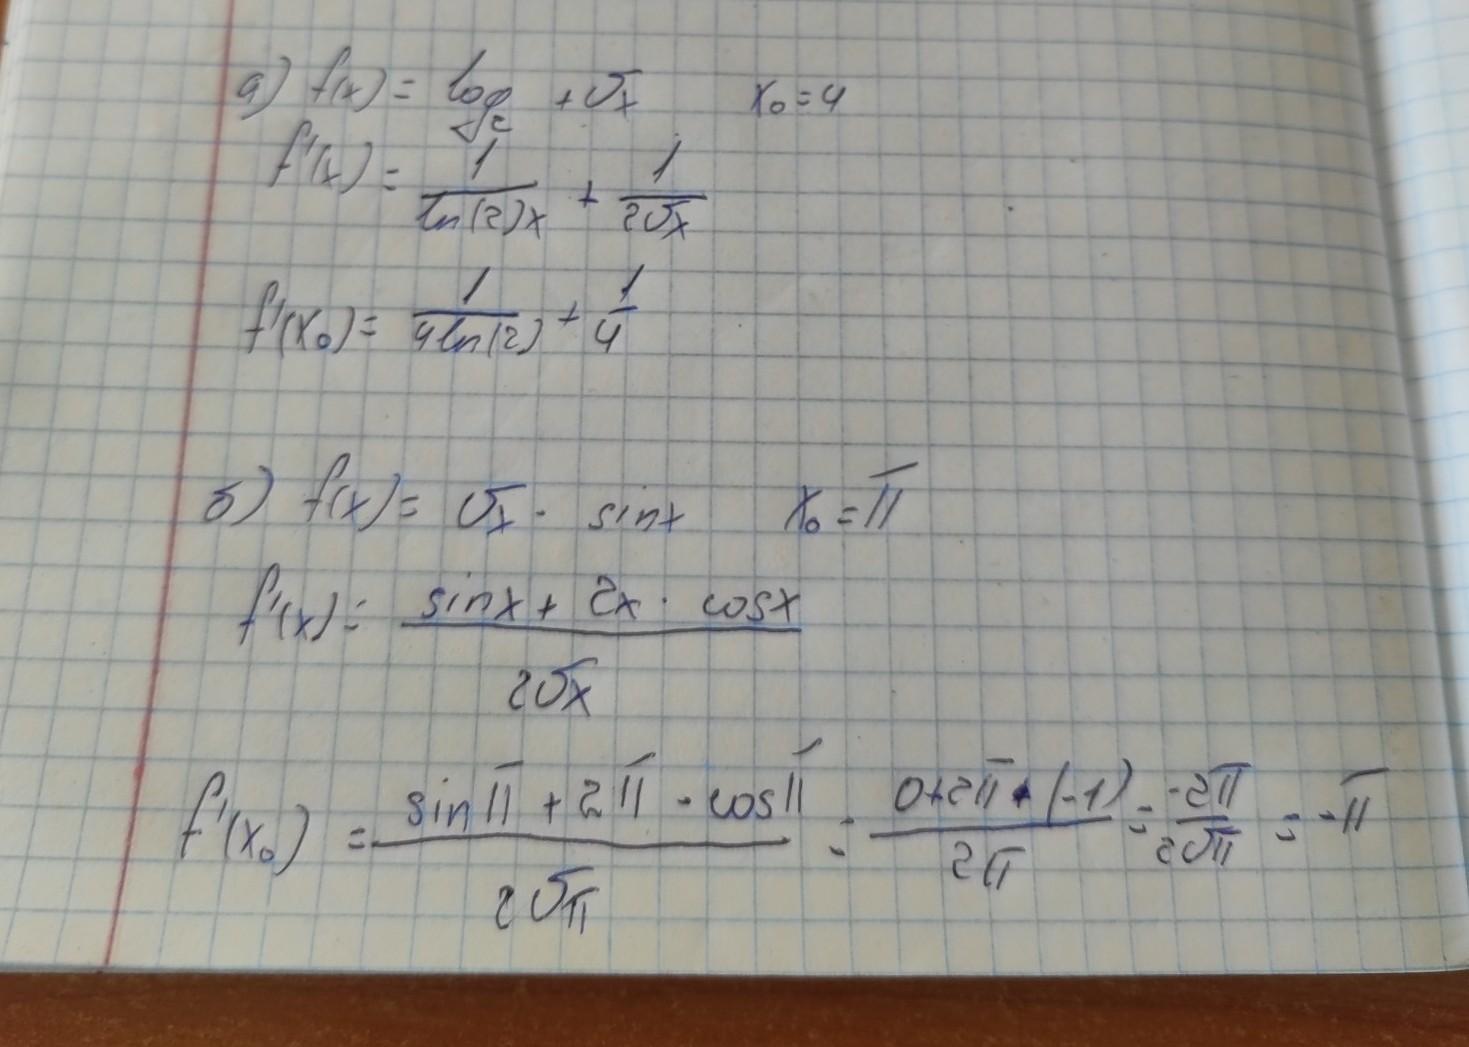 а) f(x) = log₂ + √x x₀ = 4
f'(x) = 1/(ln(2)x) + 1/(2√x)
f'(x₀) = 1/(4ln(2)) + 1/4
б) f(x) = √x · sinx x₀ = π
f'(x) = (sinx + 2x · cosx)/(2√x)
f'(x₀) = (sinπ + 2π · cosπ)/(2√π) = (0 + 2π · (-1))/(2π) = (-2π)/(2√π) = -π